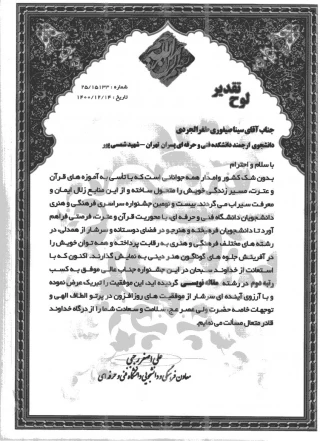 شماره : ۲۵/۱۵۱۳۳
تاریخ : ۱۴۰۰/۱۲/۱۴
لوح تقدیر
جناب آقای سینا صبوری
دانشجوی ارجمند دانشکده فنی و حرفه ای پسران تهران - شهید شمسی پور
با سلام و احترام
بدون شک کشور وامدار همه جوانانی است که با تأسی به آموزه های قرآن
و عترت، مسیر زندگی خویش را متحول ساخته و از این منابع زلال ایمان و
معرفت سیراب می گردند. بیست و نهمین جشنواره سراسری فرهنگی و هنری
دانشجویان دانشگاه فنی و حرفه ای با محوریت قرآن و عترت، فرصتی فراهم
آورد تا دانشجویان فرهیخته و هنرجو در فضای دوستانه و سرشار از همدلی، در
رشته های مختلف فرهنگی و هنری به رقابت پرداخته و همه توان خویش را
در آفرینش جلوه های گوناگون هنر دینی به نمایش گذارند. اکنون که با
استعانت از خداوند سبحان در این جشنواره جناب عالی موفق به کسب
رتبه دوم در رشته مقاله نویسی گردیده اید، این موفقیت را تبریک عرض نموده
و با آرزوی آینده ای سرشار از موفقیت های روزافزون در پرتو الطاف الهی و
توجهات خاصه حضرت ولی عصر عج سلامت و سعادت شما را از درگاه خداوند
قادر متعال مسألت می نمایم.
علی اصغر رجبی
معاون فرهنگی و دانشجویی دانشگاه فنی و حرفه ای